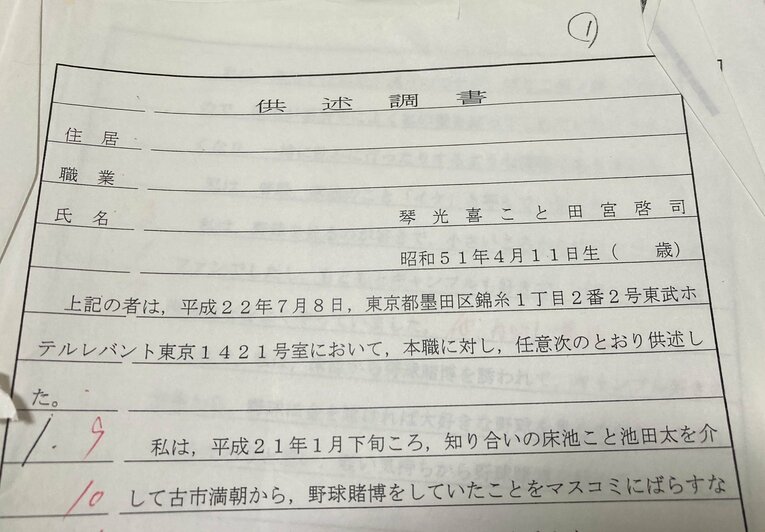 ①
供述調書
住居
職業
氏名 琴光喜こと田宮啓司
昭和51年4月11日生（　　歳）
上記の者は，平成22年7月8日，東京都墨田区錦糸1丁目2番2号東武ホ
テルレバント東京1421号室において，本職に対し，任意次のとおり供述し
た。
1.9 私は，平成21年1月下旬ころ，知り合いの床池こと池田太を介
10 して古市満朝から，野球賭博をしていたことをマスコミにばらすな